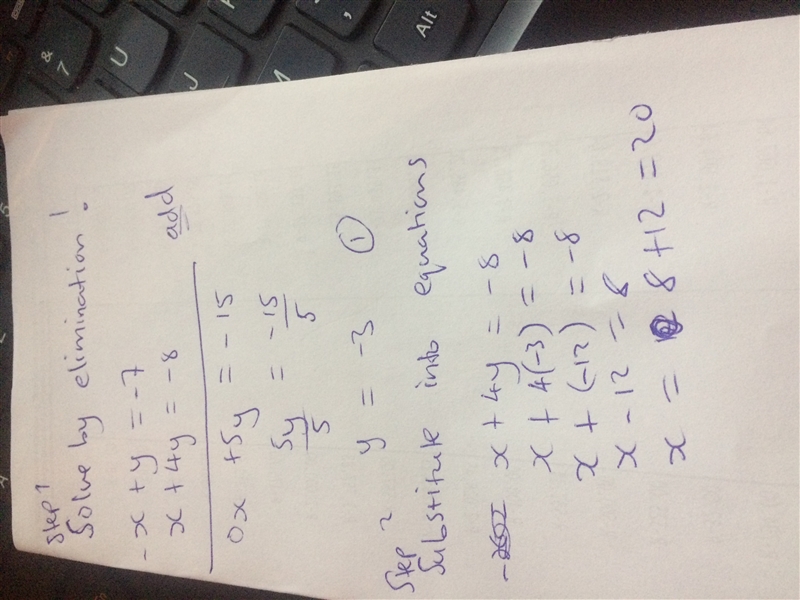 Step 1
Solve by elimination!
-x + y = -7
x + 4y = -8 add
0x + 5y = -15
5y/5 = -15/5
y = -3 ①
Step 2
Substitute into equations
x + 4y = -8
x + 4(-3) = -8
x + (-12) = -8
x - 12 = 8
x = 8 + 12 = 20
& 7
U
J
M
;
,
Alt